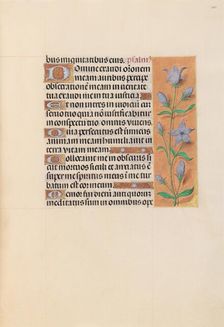 bus iniquitatibus eius. psalm
Domine exaudi orationem
meam auribus percipe
obsecrationē meam in veritate
tua exaudi me in tua iusticia
Et non intres in iudiciū cū
servo tuo quia nō iustificabitur
in conspectu tuo omnis vivens
Quia persecutus est inimicus
animam meam humiliavit in
terra vitam meam
Collocavit me in obscuris si
cut mortuos seculi et anxiatus ē
super me spiritus meus in me tur
batum est cor meum
Memor fui dierū antiquorū
meditatus sum in omnibus ope